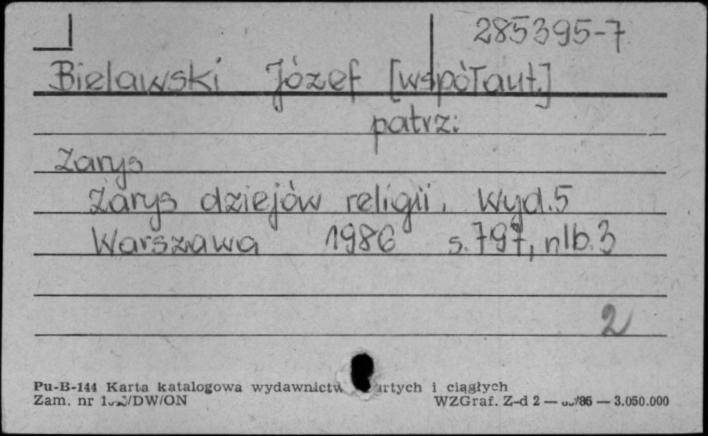 285395-7
Bielawski Józef [współaut.]
patrz:
Zarys
Zarys dziejów religii. Wyd. 5
Warszawa 1986 s. 797, nlb. 3
2
Pu-B-144 Karta katalogowa wydawnictw i ciągłych
Zam. nr /DW/ON WZGraf. Z-d 2 — /86 — 3.050.000